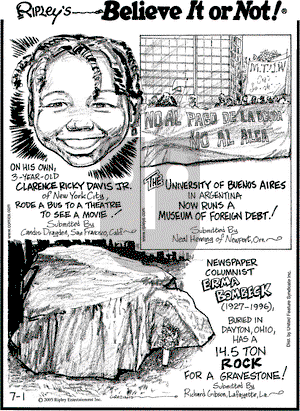 RIPLEY'S Believe It or Not!®
M.T.U.W
NO AL PAGO DE LA DEUDA
NO AL ALCA
ON HIS OWN,
3-YEAR-OLD
CLARENCE RICKY DAVIS JR.
of New York City,
RODE A BUS TO A THEATRE
TO SEE A MOVIE!
Submitted By
Candis Dragden, San Francisco, Calif.
THE UNIVERSITY OF BUENOS AIRES
IN ARGENTINA
NOW RUNS A
MUSEUM OF FOREIGN DEBT!
Submitted By
Neal Herring of Newport, Ore.
NEWSPAPER
COLUMNIST
ERMA
BOMBECK
(1927-1996),
BURIED IN
DAYTON, OHIO,
HAS A
14.5 TON
ROCK
FOR A GRAVESTONE!
Submitted By
Richard Gibson, Lafayette, La.
7-1
© 2005 Ripley Entertainment Inc.
Dist. by United Feature Syndicate Inc.